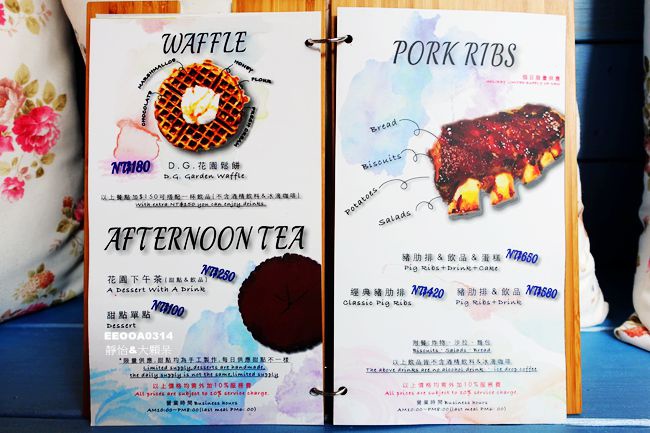 WAFFLE
MARSHMALLOW
HONEY
FLOUR
CHOCOLATE
FRESH CREAM
NT$180
D.G.花園鬆餅
D.G. Garden Waffle
以上餐點加$150可搭配一杯飲品(不含酒精飲料&冰滴咖啡)
With extra NT$150 you can enjoy drinks.
AFTERNOON TEA
花園下午茶(甜點&飲品)
NT$250
A Dessert With A Drink
甜點單點
NT$100
Dessert
EEOOA0314
靜怡&大顆呆
*限量供應,甜點均為手工製作,每日供應甜點不一樣
Limited supply,desserts are handmade,
the daily supply is not the same,limited supply
以上價格均需外加10%服務費
All prices are subject to 10% service charge.
營業時間Business hours
AM10:00~PM8:00(last meal PM6:00)
PORK RIBS
假日限量供應
Bread
Biscuits
Potatoes
Salads
豬肋排&飲品&蛋糕
NT$650
Pig Ribs+Drink+Cake
經典豬肋排
NT$420
Classic Pig Ribs
豬肋排&飲品
NT$580
Pig Ribs+Drink
附餐:炸物、沙拉、麵包
Biscuits、Salads、Bread
以上飲品皆不含酒精飲料&冰滴咖啡
The above drinks are no alcohol drink、ice drop coffee
以上價格均需外加10%服務費
All prices are subject to 10% service charge.
營業時間Business hours
AM10:00~PM8:00(last meal PM6:00)